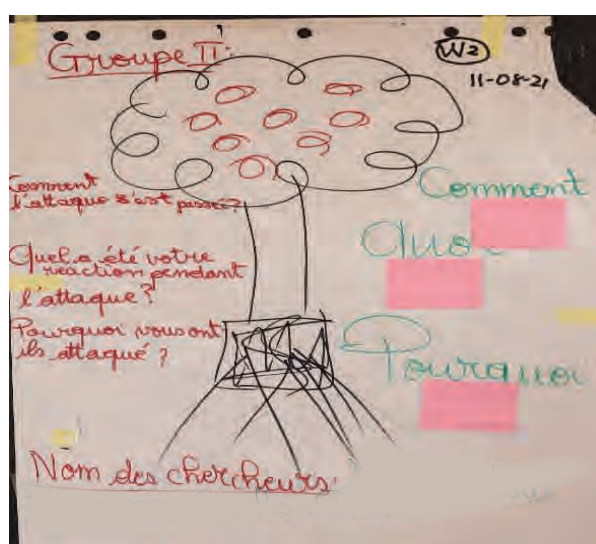 Groupe II:
W2
11-08-21
Comment
l'attaque s'est passé?
Quel a été votre
reaction pendant
l'attaque?
Pourquoi vous ont
ils attaqué?
Comment
Quoi
Pourquoi
Nom des chercheurs: